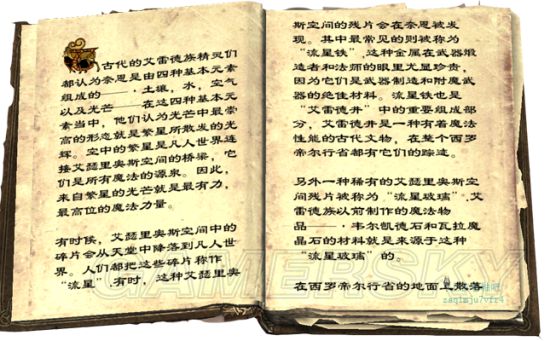 古代的艾雷德族精灵们
都认为奈恩是由四种基本元素
组成的——·土壤，水，空气
以及光芒————在这四种基本元
素当中，他们认为光芒中最崇
高的形态就是繁星所散发的光
辉。空中的繁星是凡人世界连
接艾瑟里奥斯空间的桥梁，它
们是所有魔法的源泉。因此，
来自繁星的光芒就是最有力，
最高位的魔法力量。
有时候，艾瑟里奥斯空间中的
碎片会从天堂中降落到凡人世
界。人们都把这些碎片称作
“流星”有时，这种艾瑟里奥
斯空间的残片会在奈恩被发
现。其中最常见的则被称为
“流星铁”，这种金属在武器锻
造者和法师的眼里尤显珍贵，
因为它们是武器制造和附魔武
器的绝佳材料。流星铁也是
“艾雷德井”中的重要组成部
分，艾雷德井是一种有着魔法
性能的古代文物，在整个西罗
帝尔行省都有它们的踪迹。
另外一种稀有的艾瑟里奥斯空
间残片被称为“流星玻璃”，艾
雷德族以前制作的魔法物
品——·韦尔凯德石和瓦拉魔
晶石的材料就是来源于这种
“流星玻璃”的。
在西罗帝尔行省的地面上散落
GAMERSKY
zaq1mju7vfr4